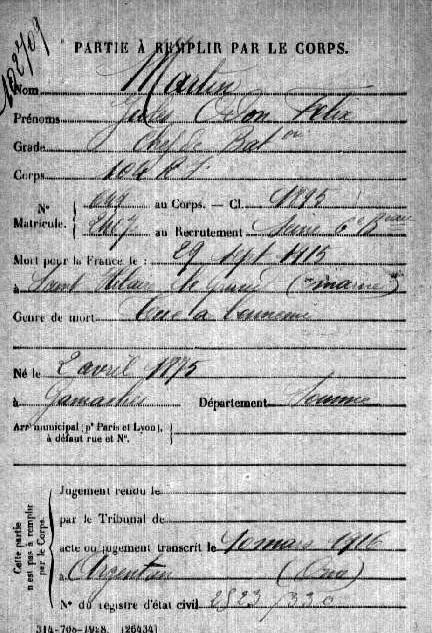 102709
PARTIE À REMPLIR PAR LE CORPS.
Nom Martin
Prénoms Jules Odon Felix
Grade Chef de Bat on
Corps 104 R I
N° Matricule. 049 au Corps. — Cl. 1895
2417 au Recrutement Seine 6e Bureau
Mort pour la France le : 29 sept 1915
à Saint Hilaire le Grand (marne)
Genre de mort Tué à l'ennemi
Né le 2 avril 1875
à Gamaches Département Somme
Arrt municipal (pr Paris et Lyon),
à défaut rue et N°.
Cette partie
n'est pas à remplir
par le Corps.
Jugement rendu le
par le Tribunal de
acte ou jugement transcrit le 10 mars 1916
à Argentan (Orne)
N° du registre d'état civil 2823/330
314-708-1928. [26434]